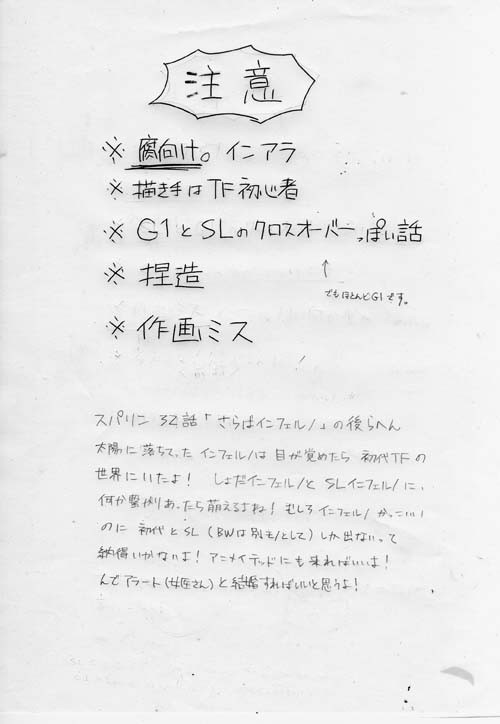 注意
※ 腐向け。インアラ
※ 描き手はTF初心者
※ G1とSLのクロスオーバーっぽい話
↑
でもほとんどG1です。
※ 捏造
※ 作画ミス
スパリン 32話「さらばインフェルノ」の後らへん
太陽に落ちてったインフェルノは目が覚めたら 初代TFの
世界にいたよ! しょだインフェルノと SLインフェルノに、
何か繋がりあったら萌えるよね! むしろインフェルノ かっこいい
のに 初代とSL (BWは別モノとして) しか出ないって
納得いかないよ! アニメイテッドにも来ればいいよ!
んでアラート(女医さん)と結婚すればいいと思うよ!